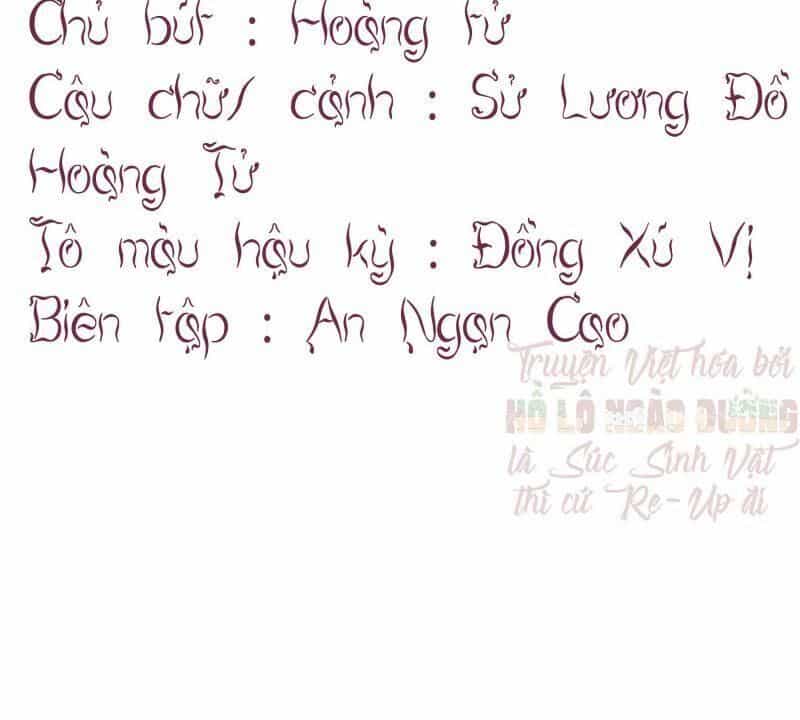 Chủ bút : Hoàng tử
Câu chữ/ cảnh : Sử Lương Đồ
Hoàng Tử
Tô màu hậu kỳ : Đồng Xú Vị
Biên tập : An Ngạn Cạo
Truyện Việt hóa bởi
HỒ LÔ NGÀO ĐƯỜNG
là Súc Sinh Vật
thì cứ Re-Up đi